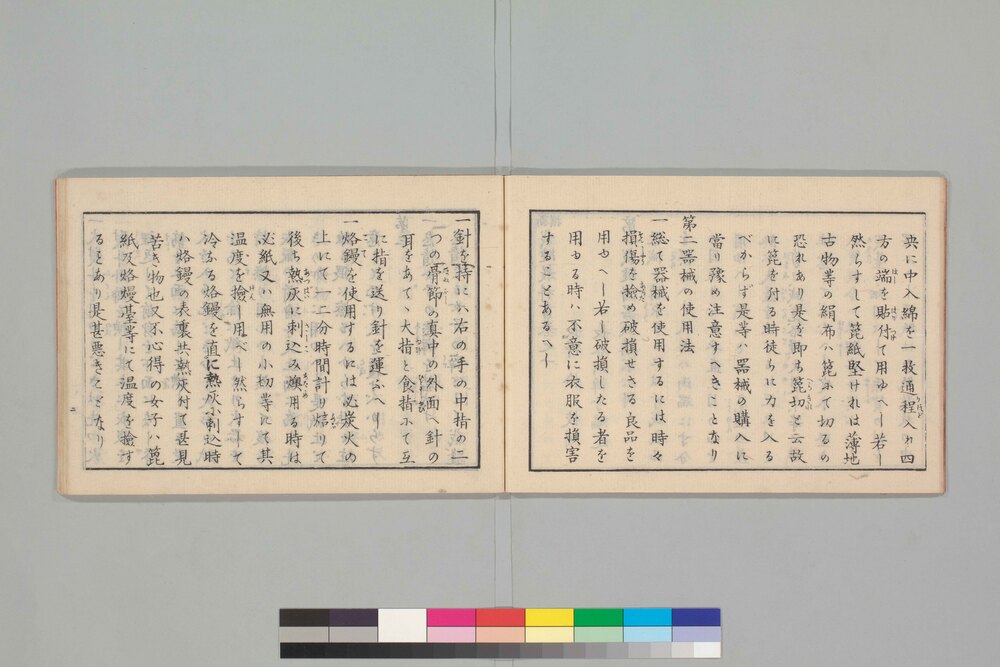 央に中入綿を一枚通程入れ四
方の端を貼付て用ゆべし若し
然らずして箆紙堅ければ薄地
古物等の絹布ハ箆にて切るの
恐れあり是を即ち箆切と云故
に箆を付る時徒らに力を入る
べからず是等ハ器械の購入に
當り豫め注意すべきことなり
第二器械の使用法
一総て器械を使用するには時々
損傷を撿め破損せざる良品を
用ゆべし若し破損したる者を
用ゆる時ハ不意に衣服を損害
することあるべし
一針を持にハ右の手の中指の二
つの骨節の真中の外面へ針の
耳をあてゝ大指と食指にて互
に指を送り針を運ぶべし
一烙鏝を使用するには必炭火の
上にて一二分時間計り焙りて
後ち熱灰に刺込み燠用る時は
必紙又ハ無用の小切等にて其
温度を撿し用べし然らずして
冷たる烙鏝を直に熱灰に刺込時
ハ烙鏝の表裏共熱灰付て甚見
苦き物也又不心得の女子ハ箆
紙及烙鏝䑓等にて温度を撿す
ることあり是甚悪きことなり